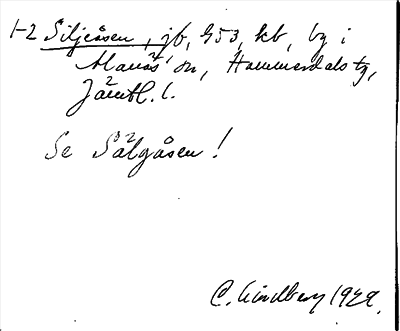 1-2 Siljeåsen, jb, 453, kb, by i
on, Hammerdals tg,
Jämtl. l.
Se Sälgåsen!
C. Lindberg 1929.